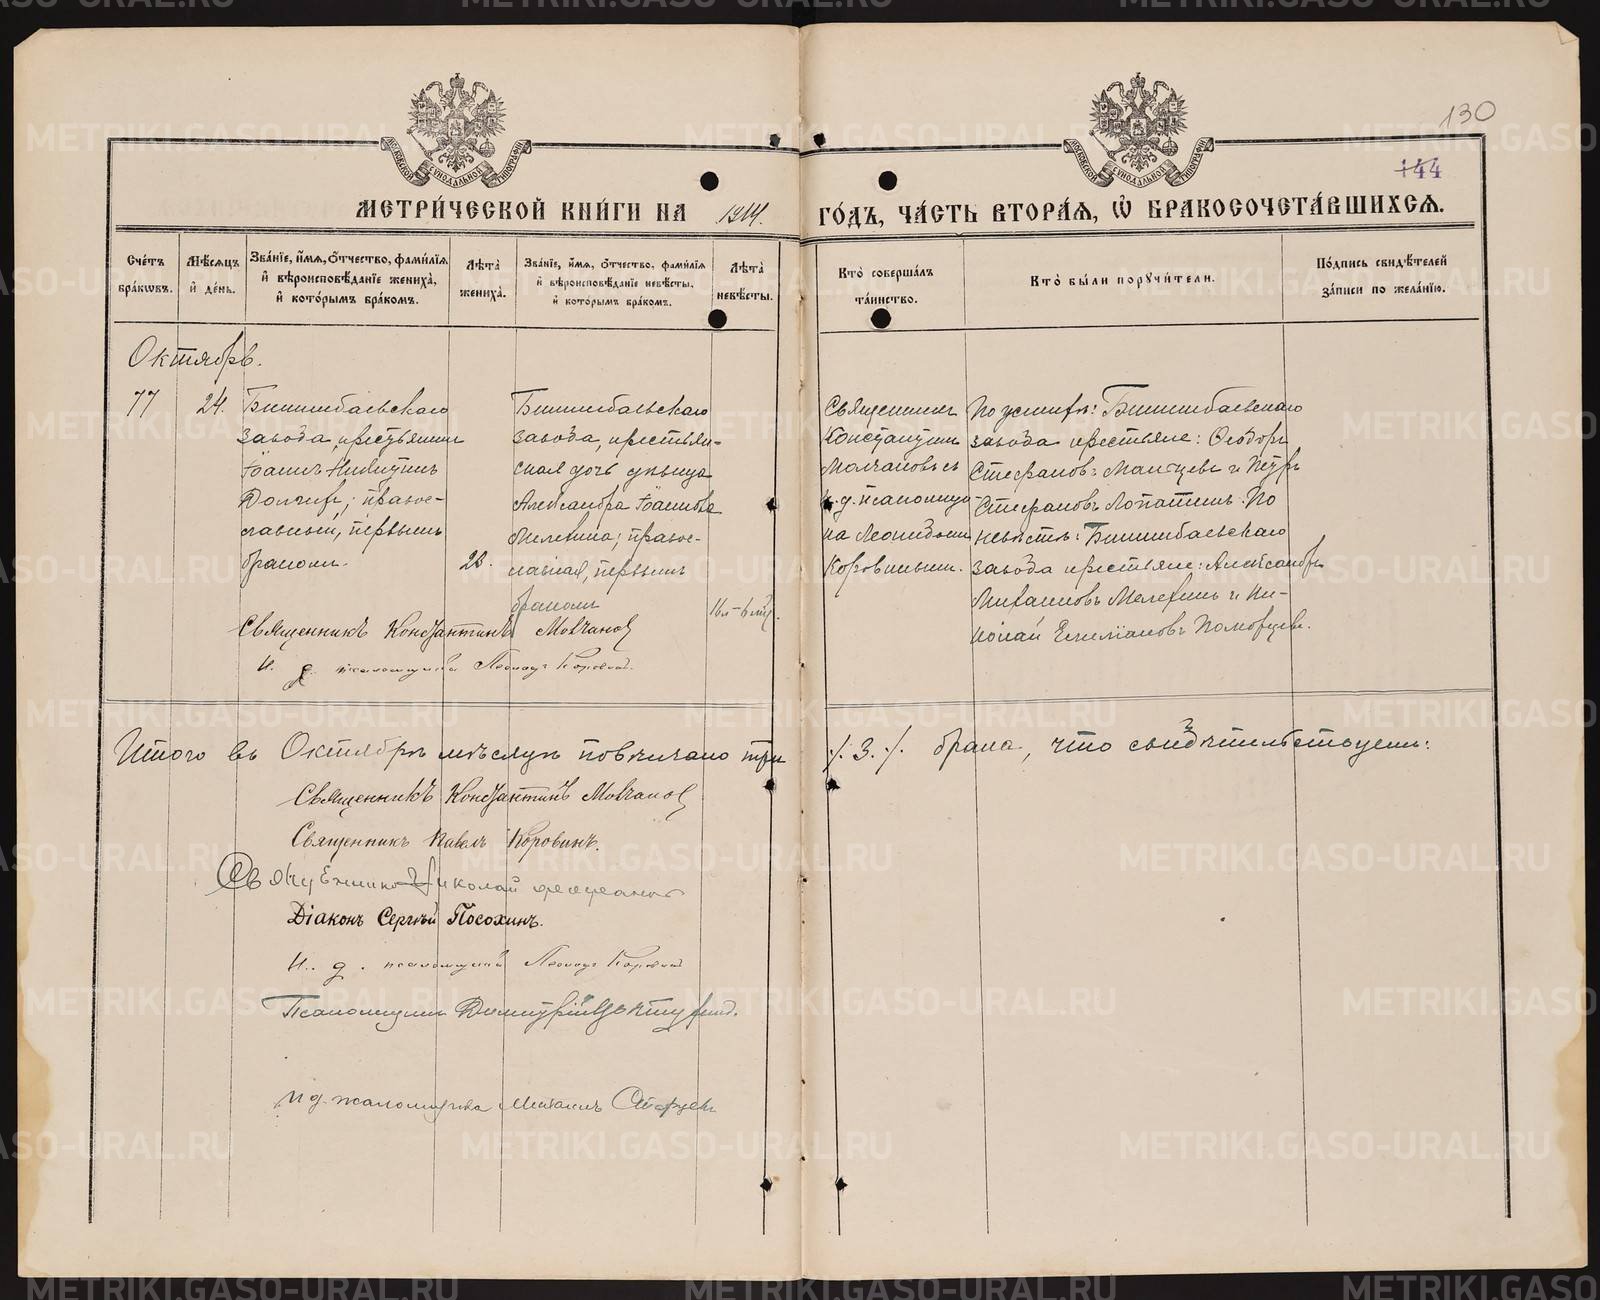 130
144
МЕТРИ́ЧЕСКОЙ КНИ́ГИ НА 1914. ГО́ДЪ, ЧА́СТЬ ВТОРА́Я, Ѽ БРАКОСОЧЕТА́ВШИХСЯ.
Сче́тъ бра́ковъ.
Мѣ́сяцъ и҆ де́нь.
Зва́нїе, и҆́мя, ѻ҆́тчество, фами́лїя и҆ вѣроисповѣ́данїе жениха̀, и҆ кото́рымъ бра́комъ.
Лѣта̀ жениха̀.
Зва́нїе, и҆́мя, ѻ҆́тчество, фами́лїя и҆ вѣроисповѣ́данїе невѣ́сты, и҆ кото́рымъ бра́комъ.
Лѣта̀ невѣ́сты.
Кто̀ соверша́лъ та́инство.
Кто̀ бы́ли порꙋчи́тели.
По́дпись свидѣ́телей за́писи по жела́нїю.
Октябрь.
77
24.
Билимбаевскаго
завода, крестьянин
Іоаннъ Никитинъ
православный, первымъ
бракомъ.
Билимбаевскаго
завода, крестьян-
ская дочь девица
Александра Іоаннова
Мелехина; право-
славная, первымъ
бракомъ
16 л - 6 мѣс.
Священникъ
Константинъ
Молчановъ съ
и. д. псаломщи-
ка Леонидомъ
Коровинымъ.
По женихѣ: Билимбаевскаго
завода крестьяне: Ѳеодоръ
Стефановъ Мальцевъ и Петръ
Стефановъ Лопатинъ. По
невѣстѣ: Билимбаевскаго
завода крестьяне: Александръ
Михаиловъ Мелехинъ и Ни-
колай Емельяновъ Поморцевъ.
Священникъ Константинъ Молчановъ
И. д. псаломщика Леонидъ Коровинъ.
Итого въ Октябрѣ мѣсяцѣ повѣнчано три /. 3. /. брака, что свидѣтельствуемъ:
Священникъ Константинъ Молчановъ
Священникъ Павелъ Коровинъ.
Священникъ Николай
Діаконъ Сергѣй Посохинъ.
И. д. псаломщика Леонидъ Коровинъ
Псаломщикъ Димитрій
И д. псаломщика Михаилъ
METRIKI.GASO-URAL.RU